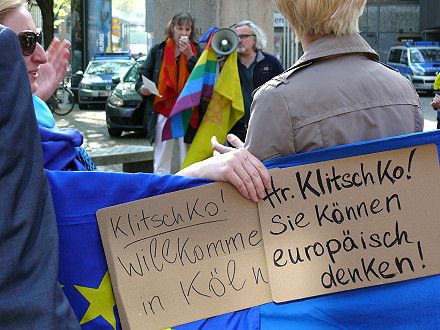 Klitschko!
Willkomme
in Köln
Hr. Klitschko!
Sie können
europäisch
denken!